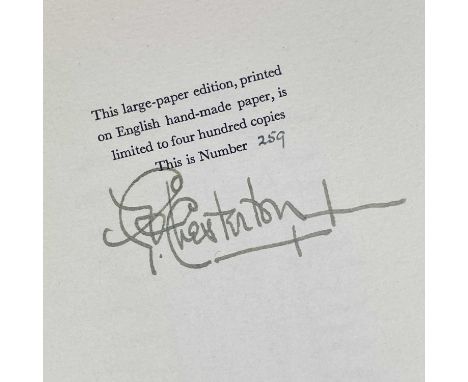 This large-paper edition, printed
on English hand-made paper, is
limited to four hundred copies
This is Number 259
G. K. Chesterton